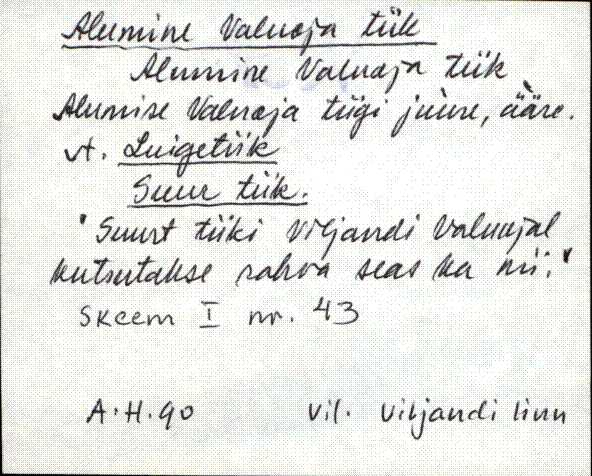 Alumine Valuoja tiik
Alumine Valuoja tiik
Alumise Valuoja tiigi juure, ääre.
vt. Luigetiik
Suur tiik.
"Suurt tiiki Viljandi Valuojal
kutsutakse rahva seas ka nii."
Skeem I nr. 43
A.H.90 Vil. Viljandi linn